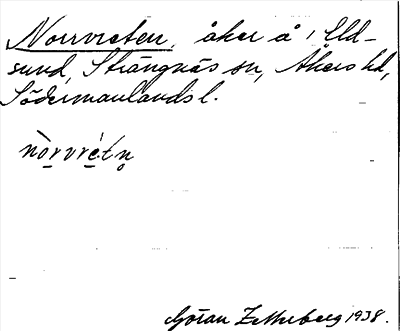 Norrvreten, åker å Eld-
sund, Strängnäs sn, Åkers hd,
Södermanlands l.
nòrvrétn̥
Göran Zetherberg 1938.